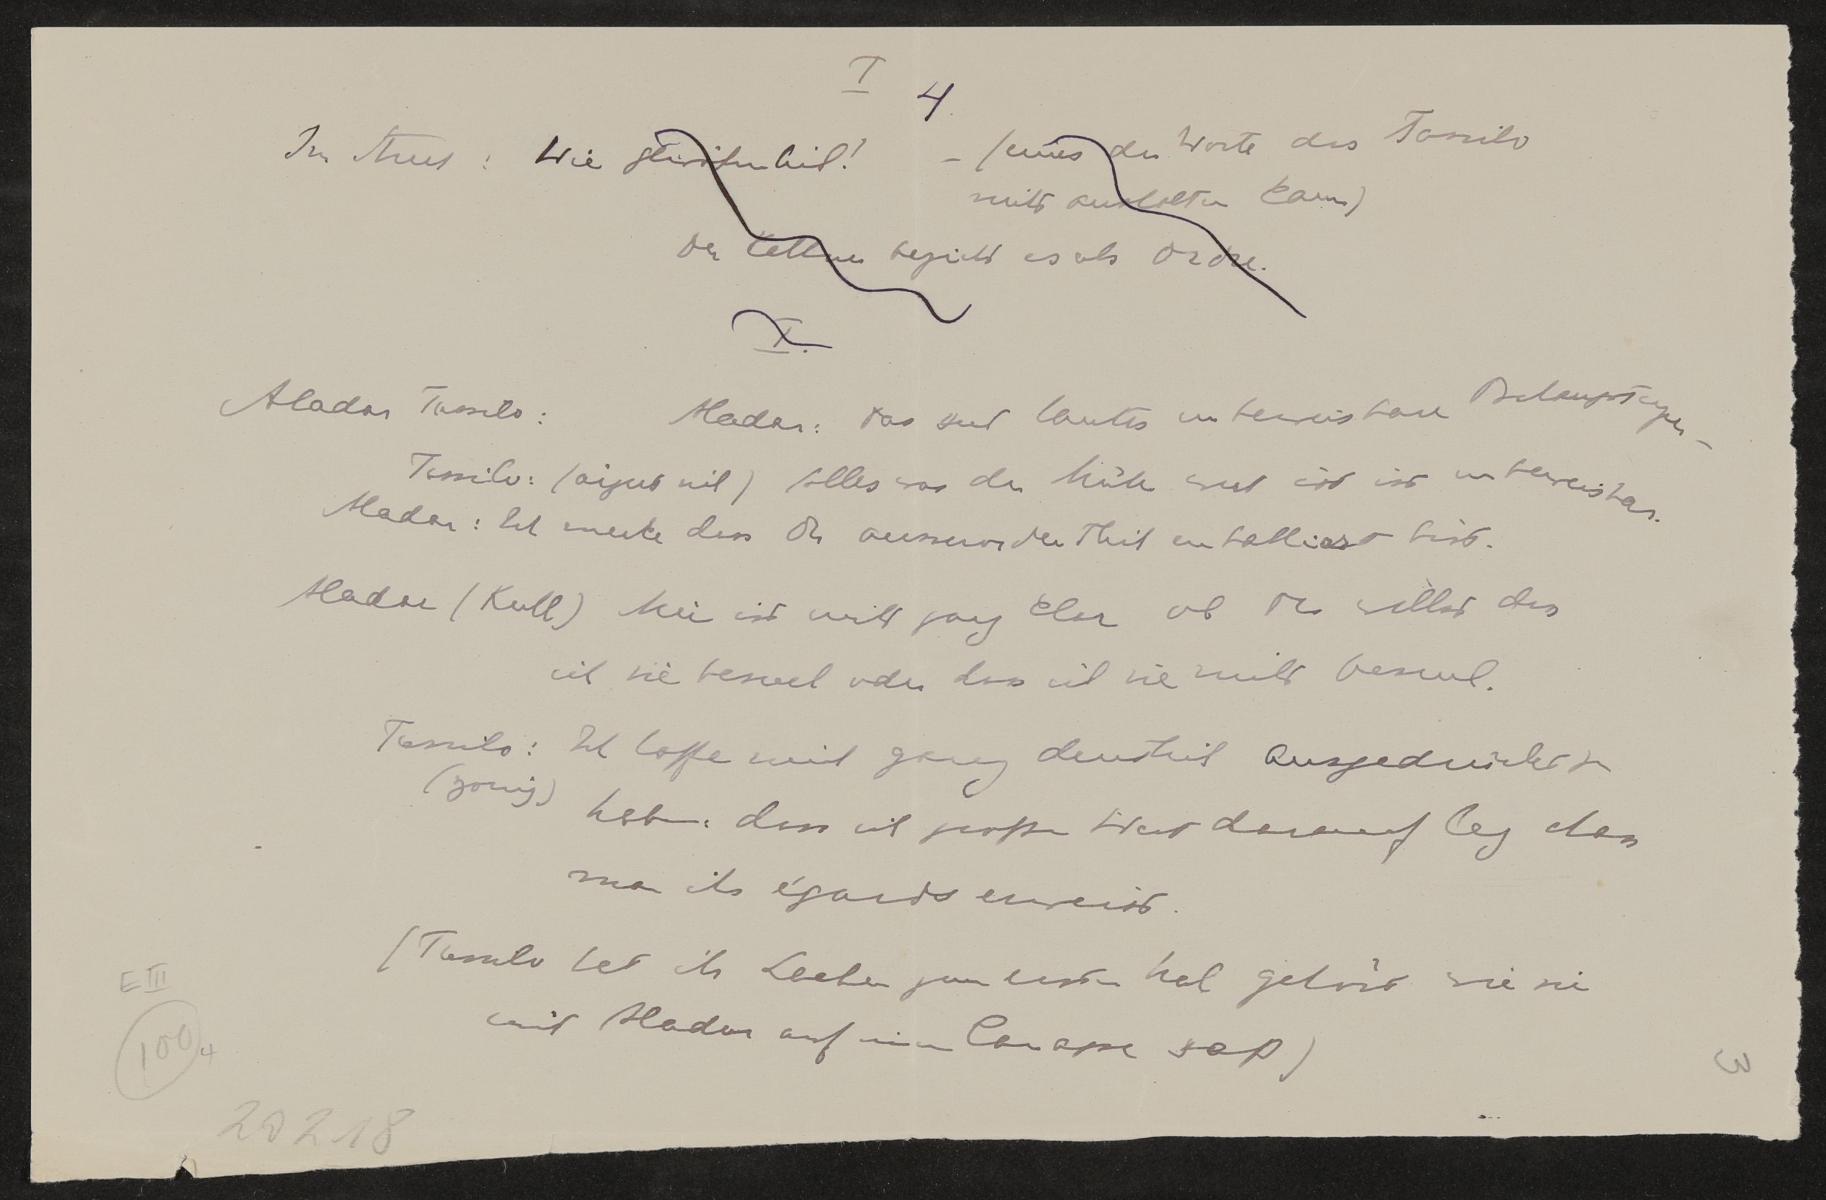 I
4.
In : Wie
— (eines der Worte des Tassilo
nicht aushalten kann)
Der Kellner bezieht es als Ordre.
I.
Aladar Tassilo: Aladar: Das sind lauter unbeweisbare Behauptungen —
Tassilo: (eigensinnig) Alles was der Mühe wert ist ist unbeweisbar.
Aladar: Ich merke dass Du ausserordentlich emballiert bist.
Aladar (kühl) Mir ist nicht ganz klar ob Du willst dass
ich sie besuch oder dass ich sie nicht besuch.
Tassilo: Ich hoffe mich ganz deutlich ausgedrückt zu
(zornig)
haben: dass ich grossen Wert darauf leg dass
man ihr égards erweist.
(Tassilo hat ihr Lachen zum ersten Mal gehört wie sie
mit Aladar auf einem Canapee saß)
E III
100
4
20218
3